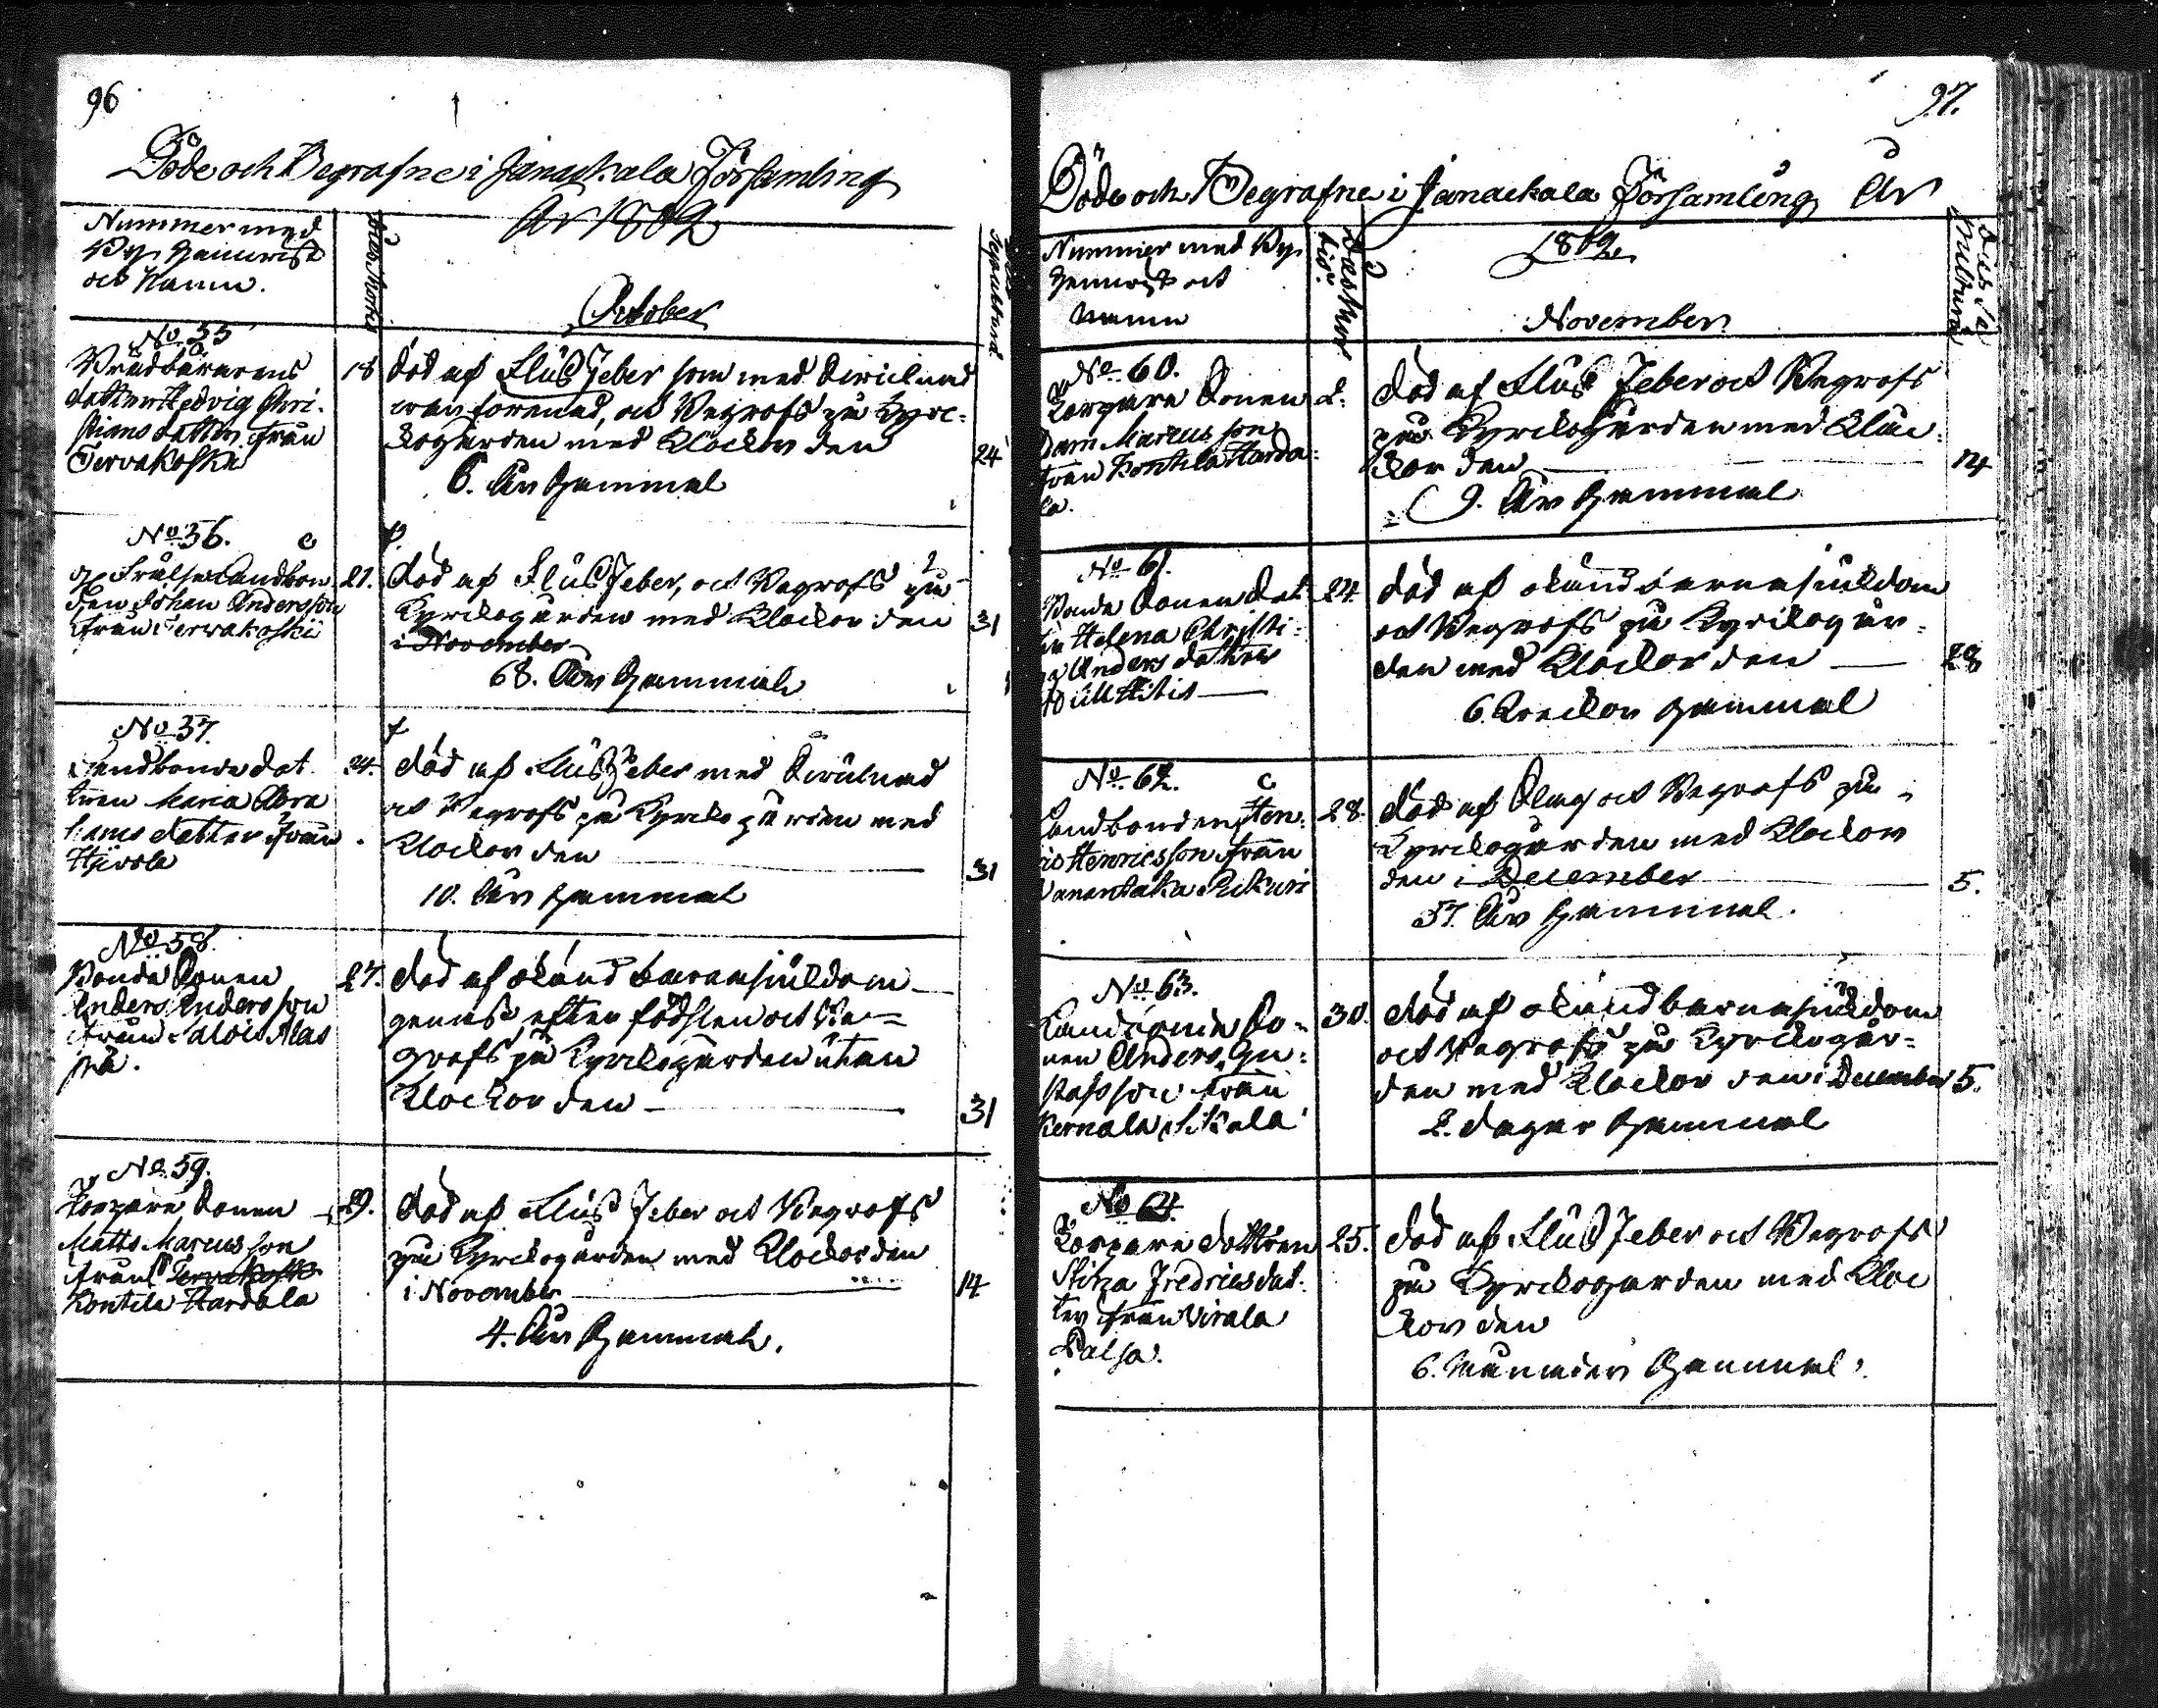 96
Döde och Begrafne i Janackala Församling
År 1802
Nummer med
By, Hemvist
och Namn.
October
No. 55
dotter Hedvig Chri-
stians dotter från
Tervakoski
18
död af Flús Feber som med
förenad, och Begrofs på Kyrc-
kogården med Klockor den
24
6. År Gammal
No. 56.
Frälse Landbon
den Johan Andersson
från Tervakoski
21.
död af Flús Feber, och Begrofs på
Kyrckogården med Klockor den
31
i November
68. År Gammal
No. 57.
Landbonde dot
tren Maria Abra
hams dotter från
24.
död af Flús Feber med
och Begrofs på Kyrckogården med
Klockor den
31
10. År Gammal
No. 58.
Bonde Sonen
Anders Andersson
från
27.
död af okänd barnasjukdom
genast efter födslen och Be=
grofs på Kyrckogården utan
Klockor den
31
No. 59.
Torpare Sonen
Matts Marcusson
från Tervakoski
Kontila Hardala
29.
död af Flús Feber och Begrofs
på Kyrckogården med Klockor den
i November
14
4. År Gammal.
97.
Döde och Begrafne i Janackala Församling År
1802
Nummer med By,
Hemvist och
Namn
November
No. 60.
Torpare Sonen
2.
Marcusson
från Kontila Harda-
la.
död af Flús Feber och Begrofs
på Kyrckogården med Kloc-
kor den
14
9. År Gammal
No. 61.
Bonde Sonen Dot
Helena Christi-
na Anders dotter
24
död af okänd barnasjukdom
och Begrofs på Kyrckogår-
den med Klockor den
28
6. Veckor gammal
No. 62.
Landbonden Hen-
ric Henricsson från
28.
död af Slag och Begrofs på
Kyrckogården med Klockor
den i December
5.
57. År gammal.
No. 63.
Landbonde So-
nen Anders Gu-
stafsson från
Kernala
30.
död af okänd barnasjukdom
och Begrofs på Kyrckogår=
den med Klockor den i December 5.
2. dagar Gammal
No 64.
Torpare dottren
Stina Fredricsdot-
ter från Virala
25.
död af Flús Feber och Begrofs
på Kyrckogården med Kloc
kor den
6. Månader Gammal.